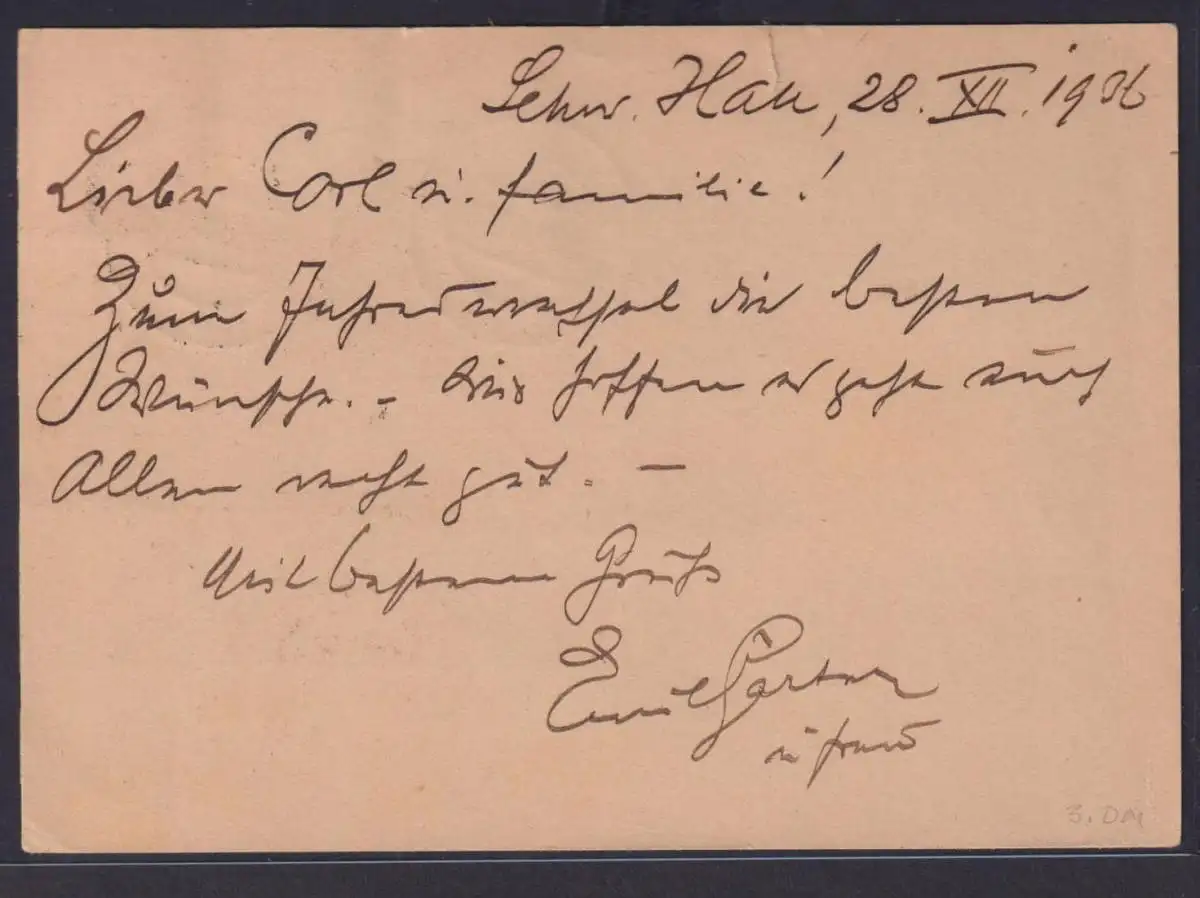 Schw. Hall, 28. XII. 1936
Lieber Carl u. Familie!
Zum Jahreswechsel die besten
Wünsche. - Wir hoffen es geht euch
Allen recht gut. -
Mit bestem Gruß
Emil Gärtner
u Frau
3. DM